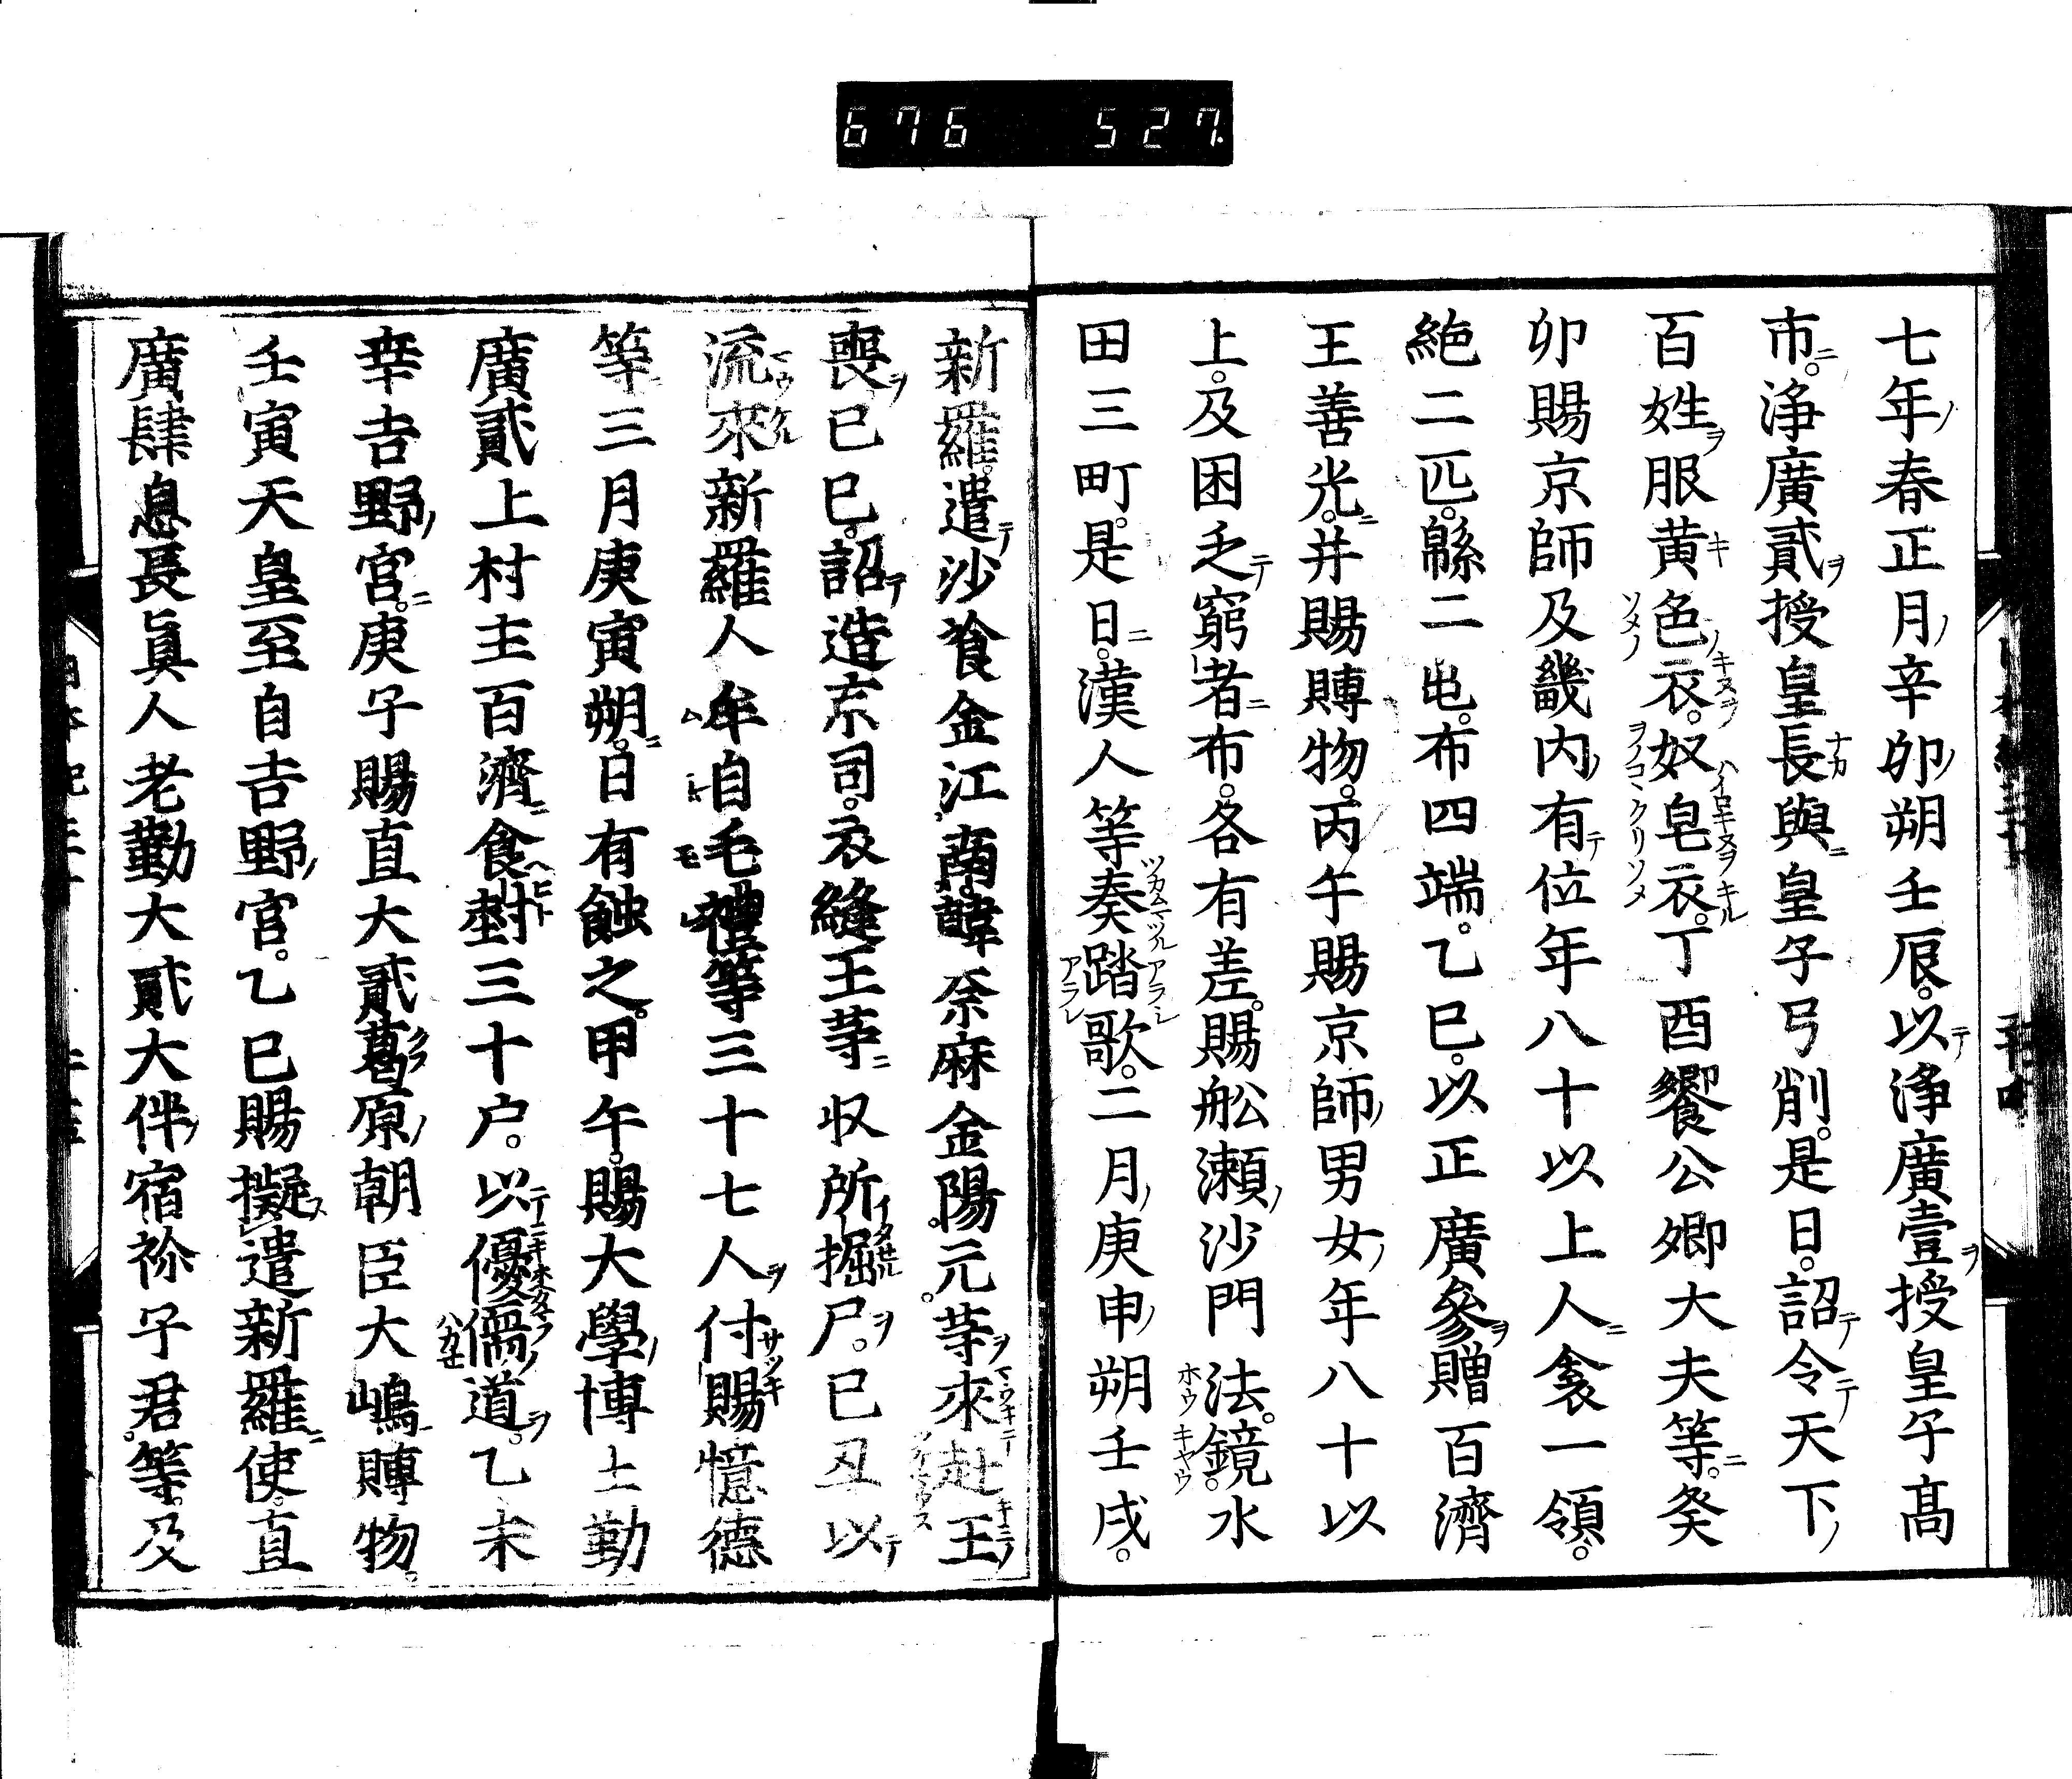 676 527
七年春正月辛卯朔壬辰以浄廣壹授皇子髙
市浄廣貳授皇長與皇子弓削是日詔令天下
百姓服黄色衣奴皂衣丁酉饗公卿大夫等癸
卯賜京師及畿内有位年八十以上人衾一領
絁二匹緜二屯布四端乙巳以正廣參贈百濟
王善光并賜賻物丙午賜京師男女年八十以
上及困乏窮者布各有差賜舩瀬沙門法鏡水
田三町是日漢人等奏踏歌二月庚申朔壬戌
新羅遣沙飡金江南韓奈麻金陽元等來赴王
喪己巳詔造京司衣縫王等収所掘尸己丑以
流來新羅人牟自毛禮等三十七人付賜憶德
等三月庚寅朔日有蝕之甲午賜大學博士勤
廣貳上村主百濟食封三十户以優儒道乙未
幸吉野宮庚子賜直大貳葛原朝臣大嶋賻物
壬寅天皇至自吉野宮乙巳賜擬遣新羅使直
廣肆息長眞人老勤大貳大伴宿祢子君等及